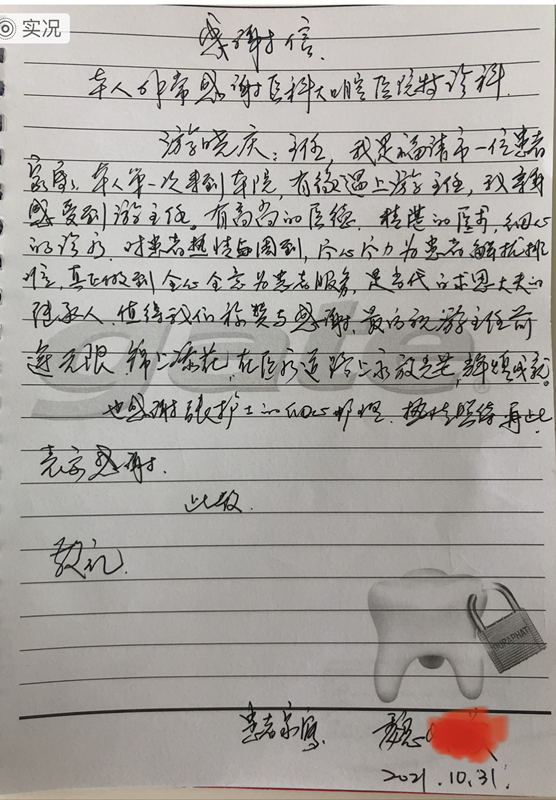 实况
感谢信
本人非常感谢医科大口腔医院特诊科
游晓庆:主任,我是福清市一位患者
家属,本人第一次来到本院,有缘遇上游主任,我亲身
感受到游主任。有高尚的医德。精湛的医术,细心
的诊疗,对患者热情周到,尽心尽力为患者解忧排
忧,真正做到全心全意为患者服务,是当代的求恩大夫的
继承人,值得我们称赞与感谢,最后祝游主任前
途无限 锦上添花,在医疗道路上永放光芒,辉煌成就。
也感谢张护士的细心护理,热情照待 再此
表示感谢.
此致
敬礼.
gate
DURAPHAT
患者家属
2021.10.31.